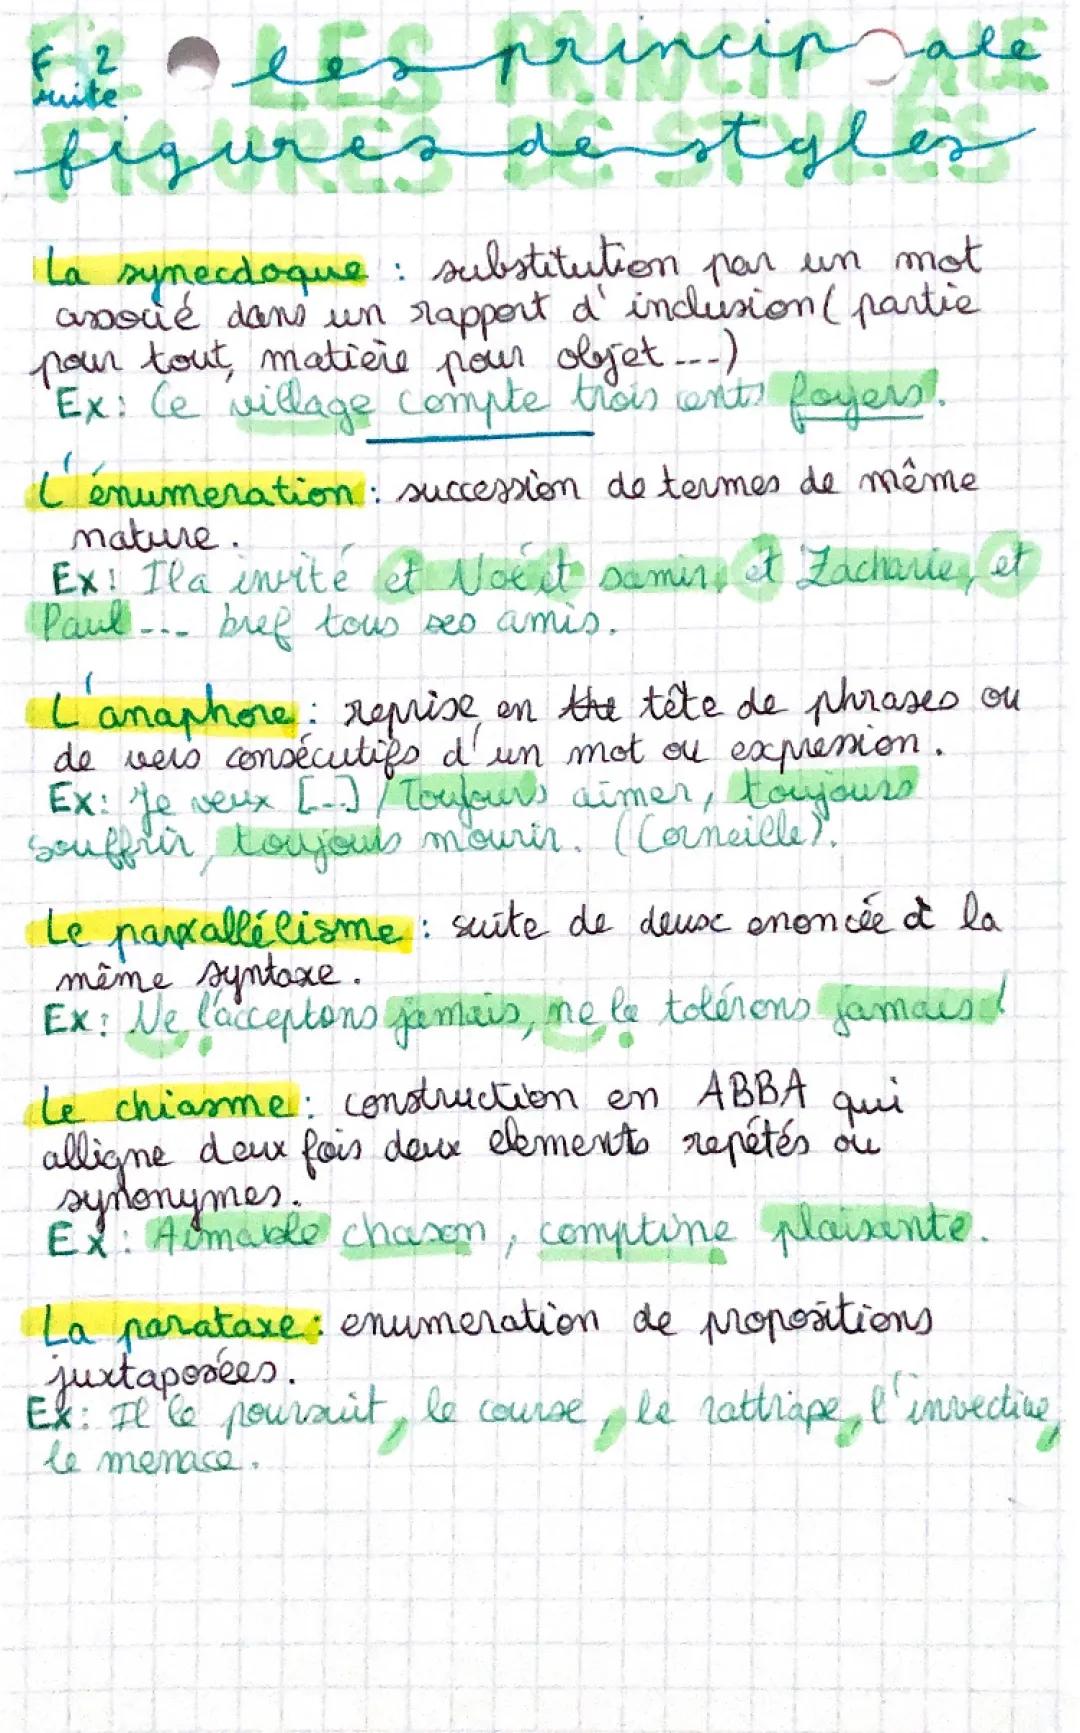 F 2 les principale
suite
figures de styles
La synecdoque : substitution par un mot
associé dans un rapport d'inclusion (partie
pour tout, matière pour objet ...)
Ex: Ce village compte trois cents foyers.
L'énumeration : succession de termes de même
nature.
Ex: Il a invité et Noé et samir, et Zacharie, et
Paul ... bref tous ses amis.
L'anaphore : reprise en tête de phrases ou
de vers consécutifs d'un mot ou expression.
Ex: Je veux [...] / Toujours aimer, toujours
souffrir, toujours mourir. (Corneille).
Le parallélisme : suite de deux enoncée à la
même syntaxe.
Ex: Ne l'acceptons jamais, ne le tolérons jamais !
Le chiasme : construction en ABBA qui
alligne deux fois deux elements repétés ou
synonymes.
Ex: Aimable chason, comptine plaisante.
La parataxe : enumeration de propositions
juxtaposées.
Ex: Il le poursuit, le course, le rattrape, l'invective,
le menace.